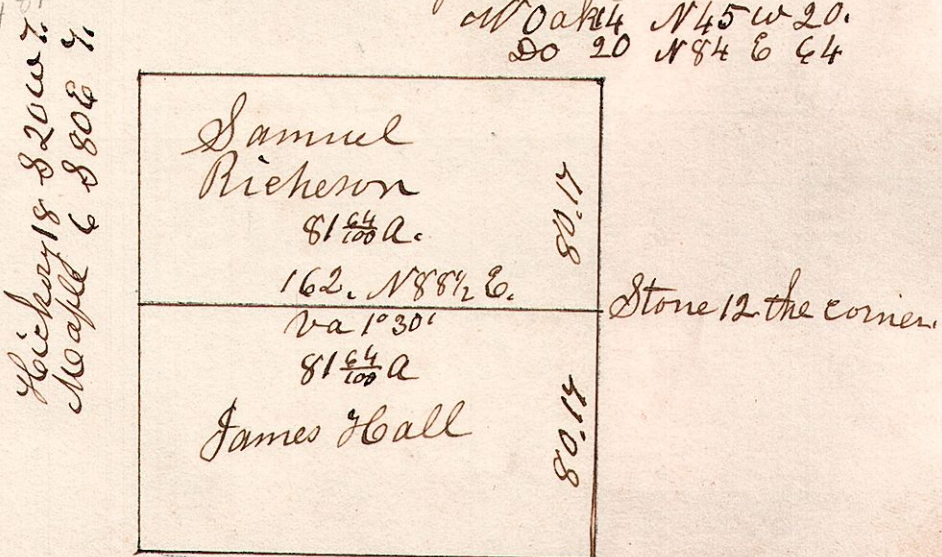 W Oak 14 N45W 20.
Do 20 N84 E 64
Hickory 18 S20W 7.
Maple 6 S80E 7.
Samuel
Richeson
81 64/100 A.
80.17
162. N88½ E.
Stone 12 the corner.
Va 1°30'
81 64/100 A
80.17
James Hall